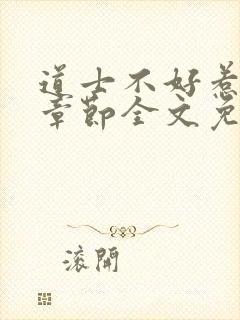 道士不好惹
章节全文免
滚开